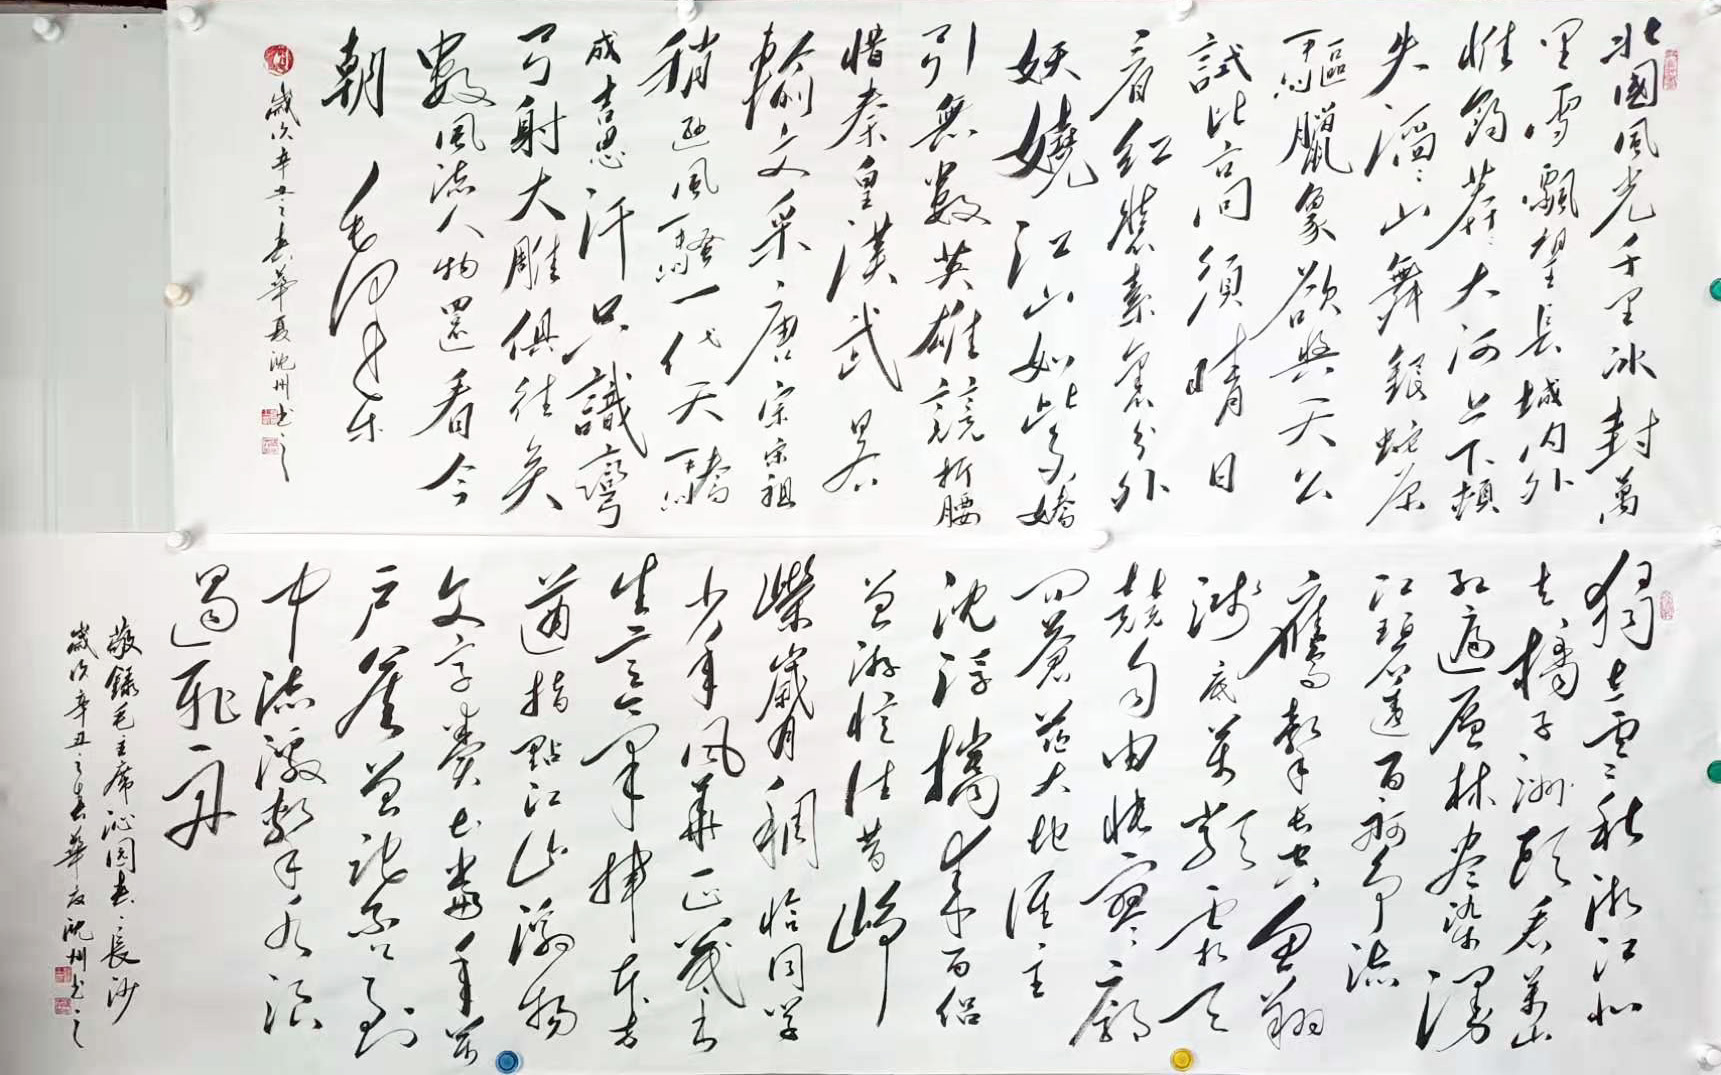 北國風光千里冰封萬
里雪飄望長城內外
惟餘莽〻大河上下頓
失滔〻山舞銀蛇原
驅臘象欲與天公
試比高須晴日
看紅裝素裹分外
妖嬈江山如此多嬌
引無數英雄競折腰
惜秦皇漢武畧
輸文采唐宗宋祖
稍遜風騷一代天驕
成吉思汗只識彎
弓射大雕俱往矣
數風流人物還看今
朝 毛澤東
歲次辛丑之春華夏沈州书之
獨立寒秋湘江北
去橘子洲頭看萬山
紅遍層林盡染漫
江碧透百舸爭流
鷹擊長空魚翔
淺底萬類霜天
競自由悵寥〻廓
問蒼茫大地誰主
沈浮攜來百侶
曾游憶往昔崢
嶸歲月稠恰同學
少年風華正茂書
生意氣揮斥方
遒指點江山激揚
文字糞土當年萬
戶侯曾記否到
中流激擊水浪
遏飛舟
敬錄毛主席沁园春長沙
歲次辛丑之春華夏沈州书之